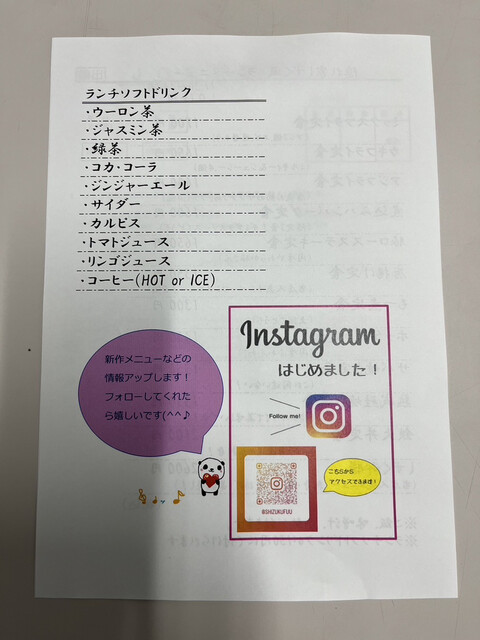 ランチソフトドリンク
・ウーロン茶
・ジャスミン茶
・緑茶
・コカ・コーラ
・ジンジャーエール
・サイダー
・カルピス
・トマトジュース
・リンゴジュース
・コーヒー(HOT or ICE)
新作メニューなどの
情報アップします！
フォローしてくれた
ら嬉しいです(^^♪
Instagram
はじめました！
Follow me!
こちらから
アクセスできます！
@SHIZUKUFUU